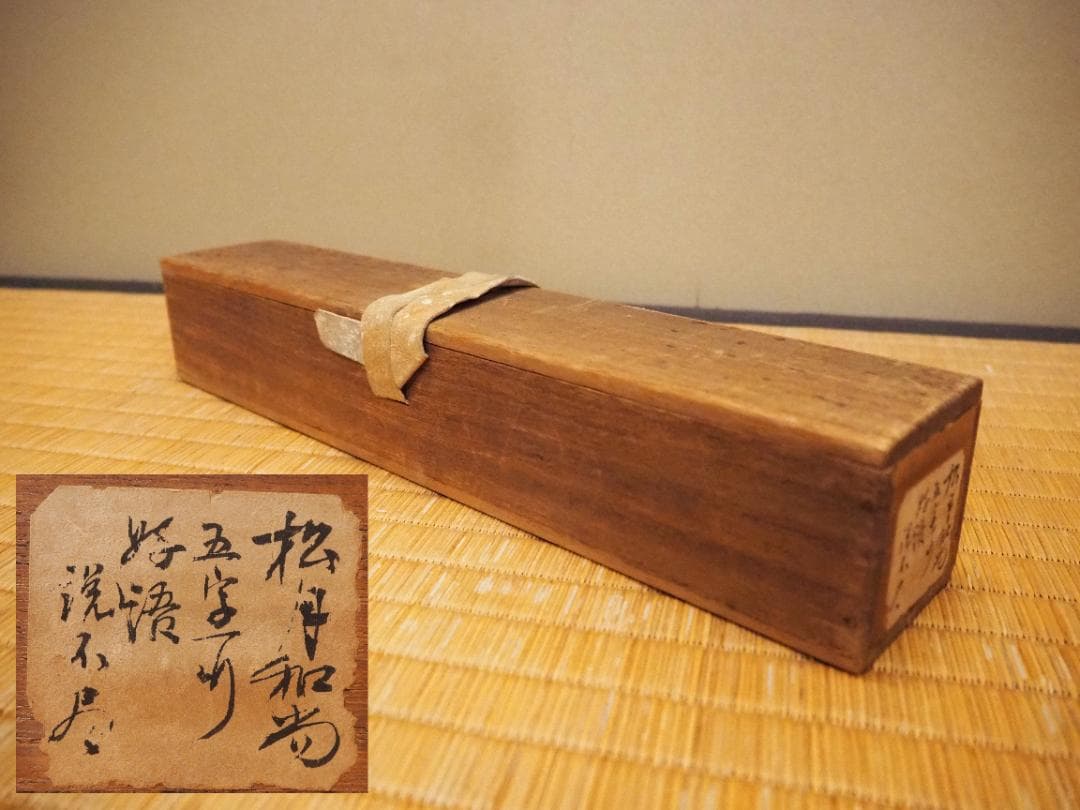 松月和尚
五字一行
好語
説不尽